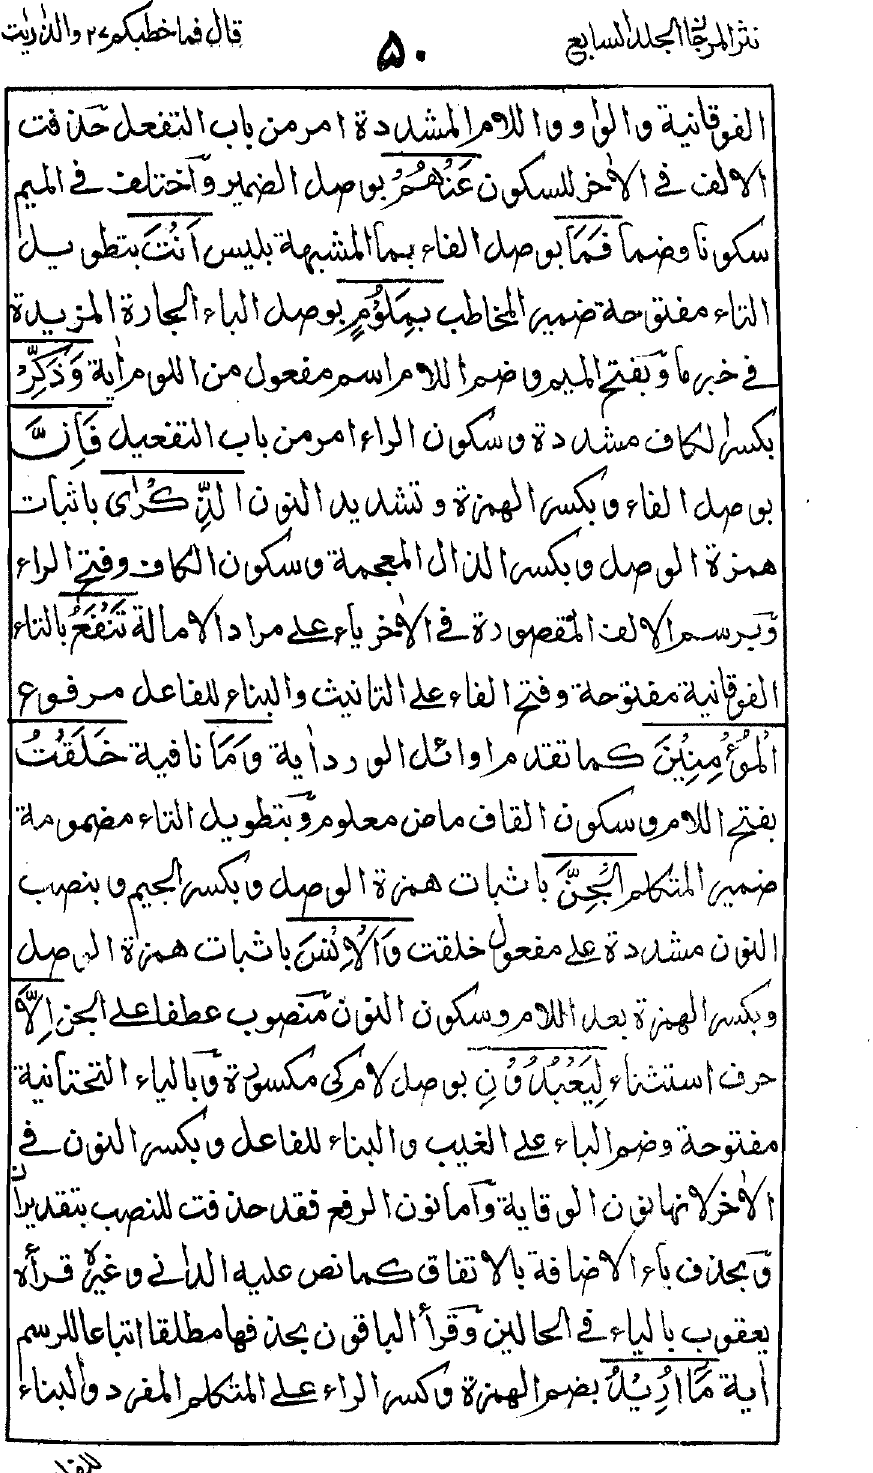 نثر المرجان المجلد السابع
۵۰
قال فما خطبكم ٢٧ والذٰريٰت
الفوقانية والواو واللام المشددة امر من باب التفعل حذفت
الالف في الاٰخر للسكون عَنْهُمْ بوصل الضمير وآختلف في الميم
سكونا وضما فَمَا بوصل الفاء بما المشبهة بليس اَنْتَ بتطويل
التاء مفتوحة ضمير المخاطب بِمَلُوْمٍ بوصل الباء الجارة المزيدة
في خبر ما وبفتح الميم وضم اللام اسم مفعول من اللوم اٰية وَذَكِّرْ
بكسر الكاف مشددة وسكون الراء امر من باب التفعيل فَاِنَّ
بوصل الفاء وبكسر الهمزة وتشديد النون الذِّكْرٰى باثبات
همزة الوصل وبكسر الذال المعجمة وسكون الكاف وفتح الراء
وبرسم الالف المقصورة في الاٰخر ياء على مراد الامالة تَنْفَعُ بالتاء
الفوقانية مفتوحة وفتح الفاء على التانيث والبناء للفاعل مرفوع
الْمُؤْمِنِيْنَ كما تقدم اوائل الورد اٰية وَمَا نافية خَلَقْتُ
بفتح اللام وسكون القاف ماض معلوم وبتطويل التاء مضمومة
ضمير المتكلم الْجِنَّ باثبات همزة الوصل وبكسر الجيم وبنصب
النون مشددة على مفعول خلقت وَالْاِنْسَ باثبات همزة الوصل
وبكسر الهمزة بعد اللام وسكون النون منصوب عطفا على الجن اِلَّا
حرف استثناء لِيَعْبُدُوْنِ بوصل لام كي مكسورة وبالياء التحتانية
مفتوحة وضم الباء على الغيب والبناء للفاعل وبكسر النون في
الاٰخر لانها نون الوقاية وآما نون الرفع فقد حذفت للنصب بتقدير ان
وبحذف ياء الاضافة بالاتفاق كما نص عليه الداني وغيره قرأه
يعقوب بالياء في الحالين وقرأ الباقون بحذفها مطلقا اتباعا للرسم
اٰية مَا اُرِيْدُ بضم الهمزة وكسر الراء على المتكلم المفرد والبناء
للفاعل